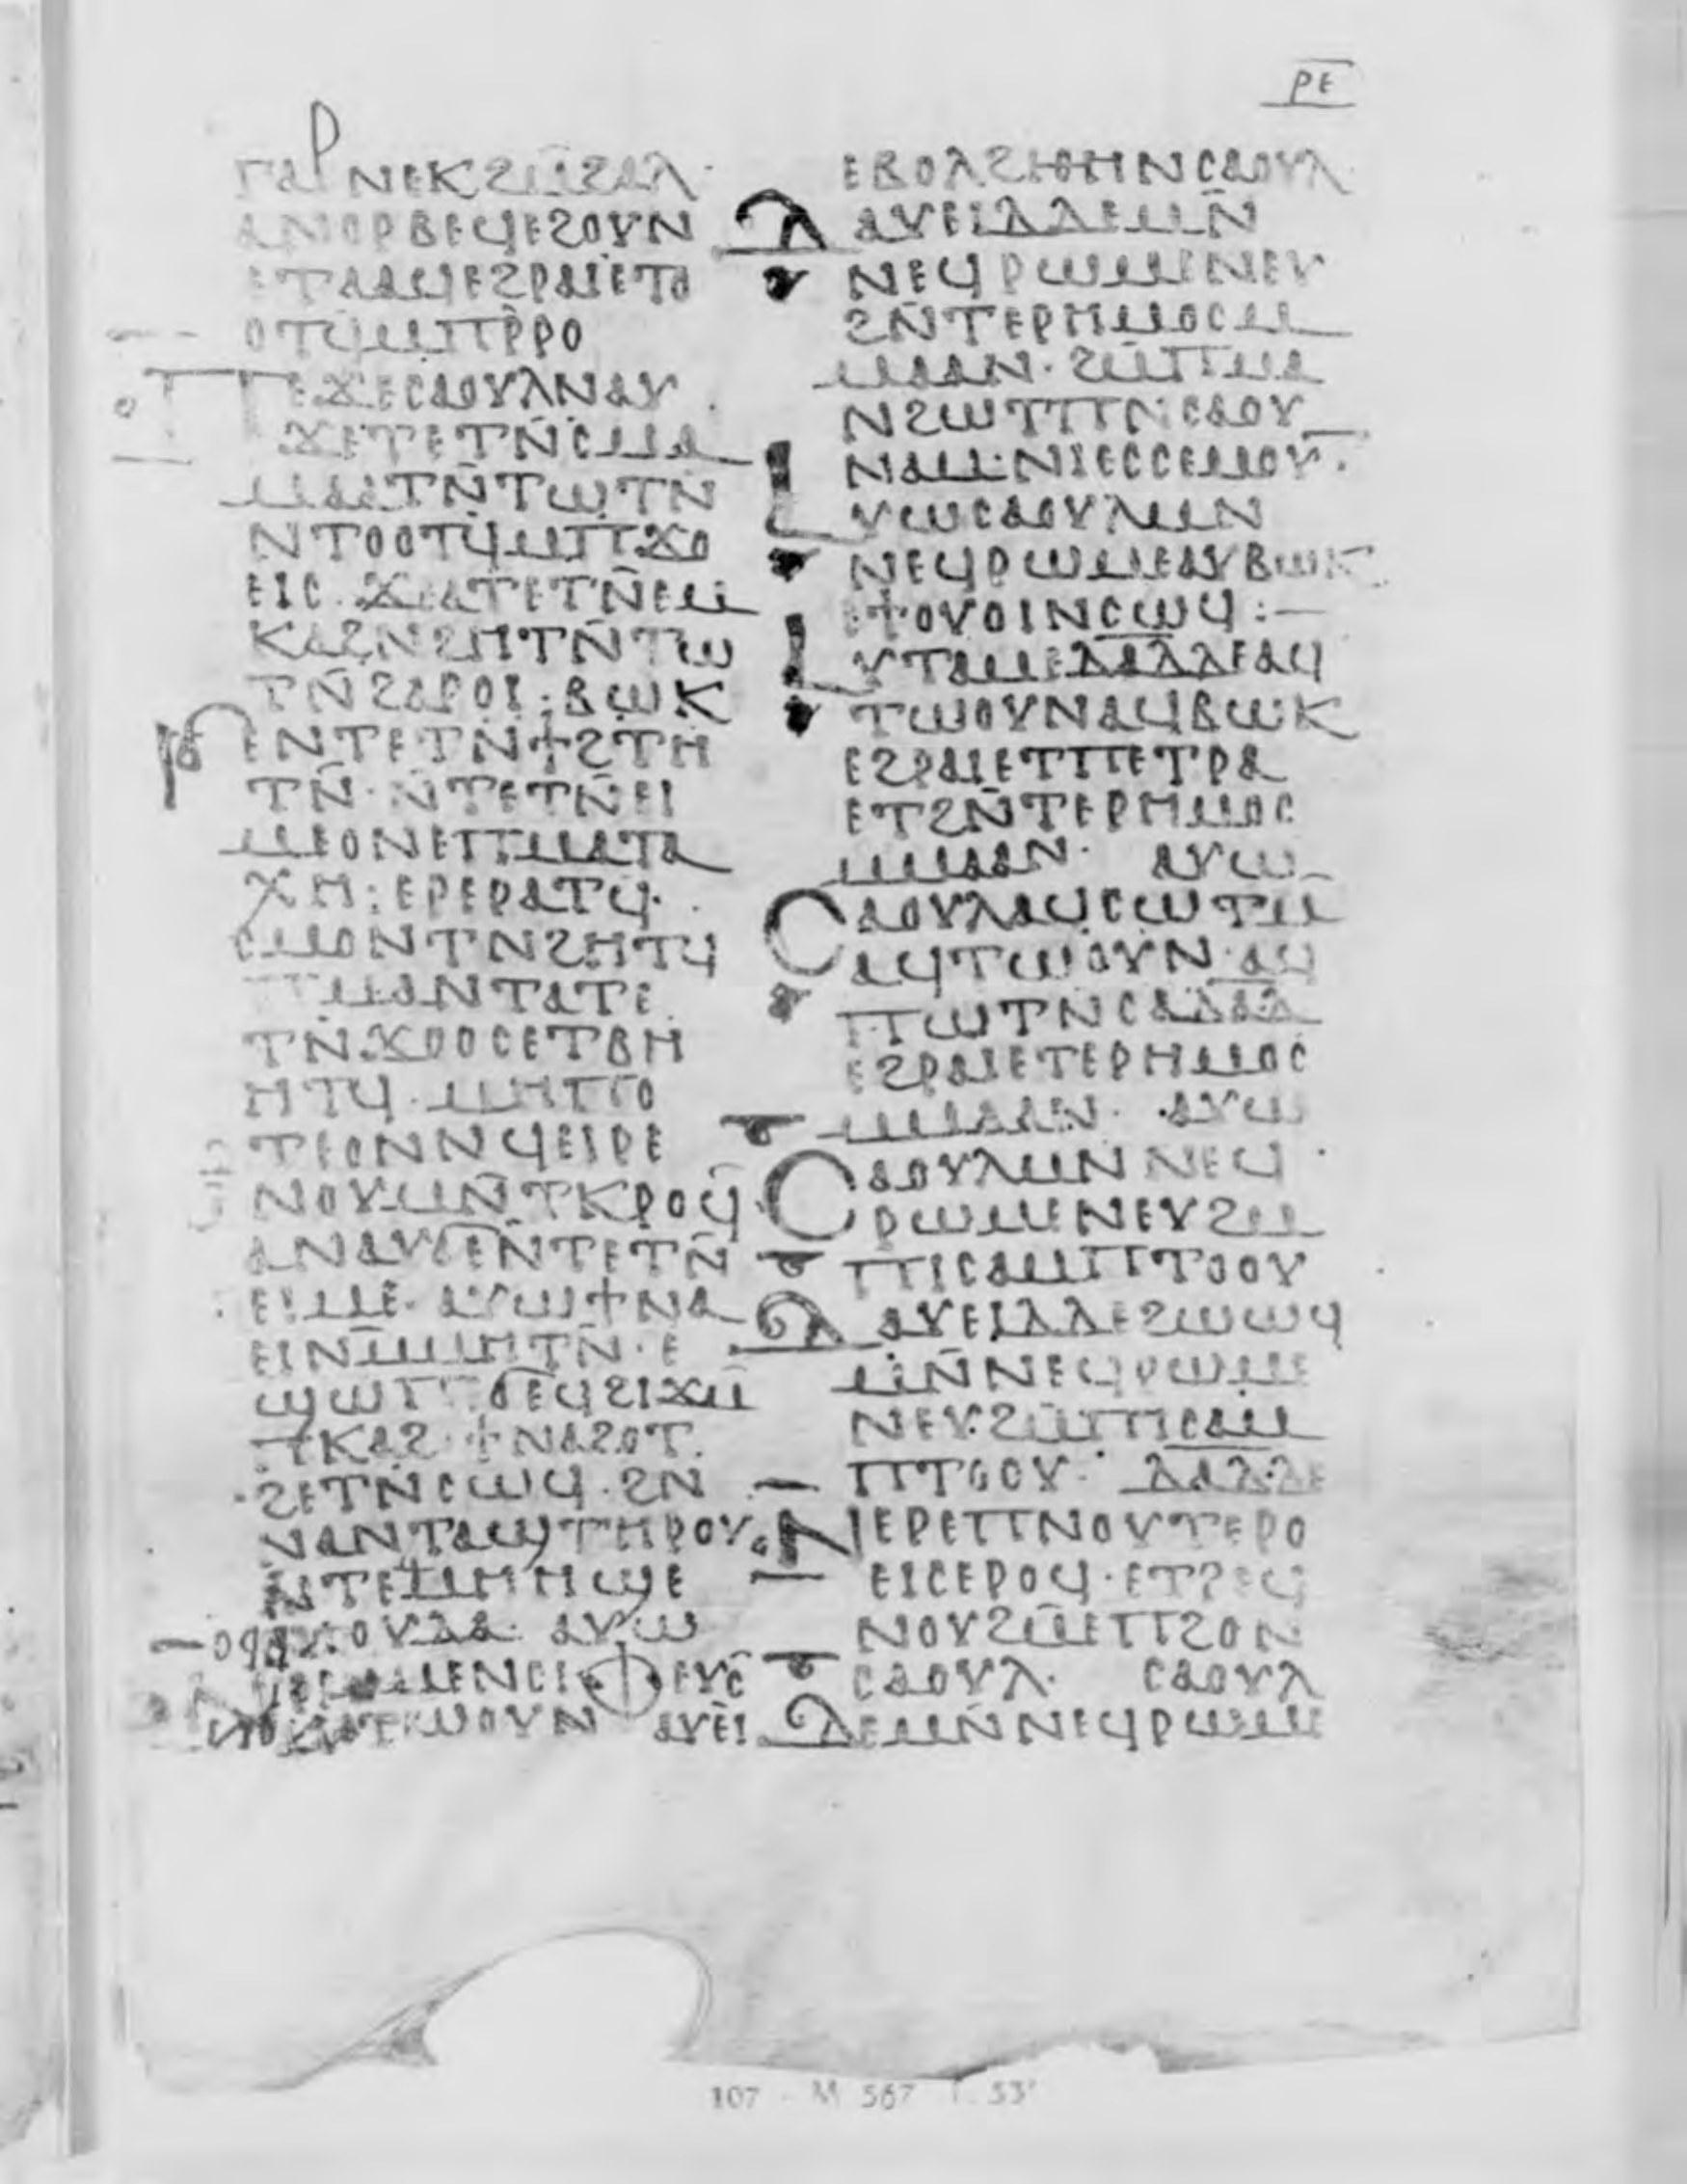 ⲢⲈ
ⲄⲀⲢⲚⲈⲔϨⲘ̅ϨⲀⲖ·
ⲀⲚⲞⲢⲂⲈϤⲈϨⲞⲨⲚ
ⲈⲦⲀⲀϤⲈϨⲢⲀⲒⲈⲦⲞ
ⲞⲦϤⲘⲠⲢ̅ⲢⲞ
ⲠⲈϪⲈⲤⲀⲞⲨⲖⲚⲀⲨ
ϪⲈⲦⲈⲦⲚ̅ⲤⲘⲀ
ⲘⲀⲀⲦⲚ̅ⲦⲰⲦⲚ̅
ⲚⲦⲞⲞⲦϤⲘⲠϪⲞ
ⲈⲒⲤ·ϪⲈⲀⲦⲈⲦⲚ̅ⲈⲘ
ⲔⲀϨⲚϨⲎⲦⲚ̅ⲦⲰ
ⲦⲚ̅ϨⲀⲢⲞⲒ:ⲂⲰⲔ
ϬⲈⲚⲦⲈⲦⲚ̅ϮϨⲦⲎ
ⲦⲚ̅·Ⲛ̅ⲦⲈⲦⲚ̅ⲈⲒ
ⲘⲈⲞⲚⲈⲠⲘⲀⲦⲀ
ⲬⲎ:ⲈⲢⲈⲢⲀⲦϤ·
ⲤⲘⲞⲚⲦⲚϨⲎⲦϤ
ⲠⲘⲀⲚⲦⲀⲦⲈ
ⲦⲚ̅ϪⲞⲞⲤⲈⲦⲂⲎ
ⲎⲦϤ·ⲘⲎⲠⲞ
ⲦⲈⲞⲚⲚϤⲈⲒⲢⲈ
ⲚⲞⲨⲘⲚ̅ⲦⲔⲢⲞϤ
ⲀⲚⲀⲨϬⲈⲚ̅ⲦⲈⲦⲚ̅
ⲈⲒⲘⲈ·ⲀⲨⲰϮⲚⲀ
ⲈⲒⲚⲘ̅ⲘⲎⲦⲚ̅·Ⲉ
ϢⲰⲠⲈϬⲈϤϨⲒϪⲘ̅
ⲠⲔⲀϨ·ϮⲚⲀϨⲞⲦ
ϨⲈⲦⲚ̅ⲤⲰϤ·ϨⲚ
ⲚⲀⲚⲦⲀϢⲦⲎⲢⲞⲨ
ⲚⲦⲈⲘⲘⲎⲎϢⲈ
ⲚⲒⲞⲨⲆⲀ· ⲀⲨⲰ
ⲀⲨⲦⲰⲞⲨⲚ ⲀⲨⲈⲒ
ⲈⲂⲞⲖϨⲒⲐⲎⲚⲤⲀⲞⲨⲖ
ⲆⲀⲨⲈⲒⲆⲆⲈⲘⲚ̅
ⲚⲈϤⲢⲰⲘⲈⲚⲈⲨ
ϨⲚ̅ⲦⲈⲢⲎⲘⲞⲤⲘ
ⲘⲀⲀⲚ·ϨⲘ̅ⲠⲘⲀ
ⲚϨⲰⲦⲠⲚⲤⲀⲞⲨ
ⲚⲀⲘ·ⲚⲒⲈⲤⲤⲈⲘⲞⲨ·
ⲀⲨⲰⲤⲀⲞⲨⲖⲘⲚ
ⲚⲈϤⲢⲰⲘⲈⲀⲨⲂⲰⲔ
ⲈϮⲞⲨⲞⲒⲚⲤⲰϤ:—
ⲀⲨⲦⲀⲘⲈⲆⲀⲆⲆⲈⲀϤ
ⲦⲰⲞⲨⲚⲀϤⲂⲰⲔ
ⲈϨⲢⲀⲒⲈⲦⲠⲈⲦⲢⲀ
ⲈⲦϨⲚ̅ⲦⲈⲢⲎⲘⲞⲤ
ⲘⲘⲀⲀⲚ· ⲀⲨⲰ
ⲤⲀⲞⲨⲖⲀϤⲤⲰⲦⲘ
ⲀϤⲦⲰⲞⲨⲚ·ⲀϤ
ⲠⲰⲦⲚⲤⲀⲆⲀⲆ
ⲈϨⲢⲀⲒⲈⲦⲈⲢⲎⲘⲞⲤ
ⲘⲘⲀⲀⲚ· ⲀⲨⲰ
ⲤⲀⲞⲨⲖⲘⲚⲚⲈϤ
ⲢⲰⲘⲈⲚⲈⲨϨⲘ
ⲠⲒⲤⲀⲘⲠⲦⲞⲞⲨ
ⲆⲀⲨⲈⲒⲆⲆⲈϨⲰⲰϤ
ⲘⲚ̅ⲚⲈϤⲢⲰⲘⲈ
ⲚⲈⲨϨⲘ̅ⲠⲒⲤⲀⲘ
ⲠⲦⲞⲞⲨ· ⲆⲀⲆⲆⲈ
ⲚⲈⲢⲈⲠⲚⲞⲨⲦⲈⲢⲞ
ⲈⲒⲤⲈⲢⲞϤ·ⲈⲦⲢⲈϤ
ⲚⲞⲨϨⲘ̅ⲈⲠϨⲞⲚ
ⲤⲀⲞⲨⲖ· ⲤⲀⲞⲨⲖ
ⲆⲈⲘⲚ̅ⲚⲈϤⲢⲰⲘⲈ
107 - M 567 f. 53ʳ